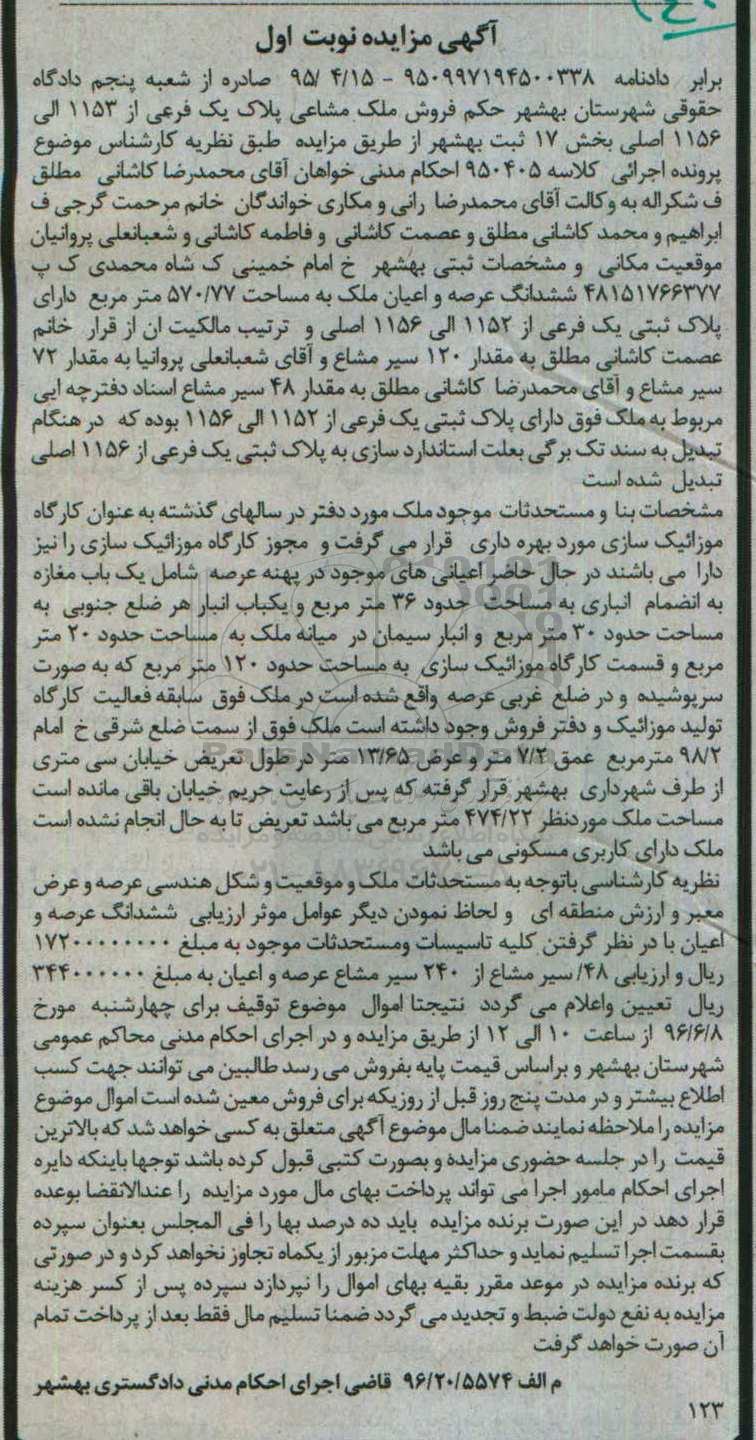 آگهی مزایده نوبت اول
برابر دادنامه ۹۵۰۹۹۷۱۹۴۵۰۰۳۳۸ - ۹۵/۴/۱۵ صادره از شعبه پنجم دادگاه
حقوقی شهرستان بهشهر حکم فروش ملک مشاعی پلاک یک فرعی از ۱۱۵۳ الی
۱۱۵۶ اصلی بخش ۱۷ ثبت بهشهر از طریق مزایده طبق نظریه کارشناس موضوع
پرونده اجرائی کلاسه ۹۵۰۴۰۵ احکام مدنی خواهان آقای محمدرضا کاشانی مطلق
ف شکراله به وکالت آقای محمدرضا رانی و مکاری خواندگان خانم مرحمت گرجی ف
ابراهیم و محمد کاشانی مطلق و عصمت کاشانی و فاطمه کاشانی و شعبانعلی پروانیان
موقعیت مکانی و مشخصات ثبتی بهشهر خ امام خمینی ک شاه محمدی ک پ
۴۸۱۵۱۷۶۶۳۷۷ ششدانگ عرصه و اعیان ملک به مساحت ۵۷۰/۷۷ متر مربع دارای
پلاک ثبتی یک فرعی از ۱۱۵۲ الی ۱۱۵۶ اصلی و ترتیب مالکیت ان از قرار خانم
عصمت کاشانی مطلق به مقدار ۱۲۰ سیر مشاع و آقای شعبانعلی پروانیا به مقدار ۷۲
سیر مشاع و آقای محمدرضا کاشانی مطلق به مقدار ۴۸ سیر مشاع اسناد دفترچه ایی
مربوط به ملک فوق دارای پلاک ثبتی یک فرعی از ۱۱۵۲ الی ۱۱۵۶ بوده که در هنگام
تبدیل به سند تک برگی بعلت استاندارد سازی به پلاک ثبتی یک فرعی از ۱۱۵۶ اصلی
تبدیل شده است
مشخصات بنا و مستحدثات موجود ملک مورد دفتر در سالهای گذشته به عنوان کارگاه
موزائیک سازی مورد بهره داری قرار می گرفت و مجوز کارگاه موزائیک سازی را نیز
دارا می باشند در حال حاضر اعیانی های موجود در پهنه عرصه شامل یک باب مغازه
به انضمام انباری به مساحت حدود ۳۶ متر مربع و یکباب انبار هر ضلع جنوبی به
مساحت حدود ۳۰ متر مربع و انبار سیمان در میانه ملک به مساحت حدود ۲۰ متر
مربع و قسمت کارگاه موزائیک سازی به مساحت حدود ۱۲۰ متر مربع که به صورت
سرپوشیده و در ضلع غربی عرصه واقع شده است در ملک فوق سابقه فعالیت کارگاه
تولید موزائیک و دفتر فروش وجود داشته است ملک فوق از سمت ضلع شرقی خ امام
۹۸/۲ مترمربع عمق ۷/۲ متر و عرض ۱۳/۶۵ متر در طول تعریض خیابان سی متری
از طرف شهرداری بهشهر قرار گرفته که پس از رعایت حریم خیابان باقی مانده است
مساحت ملک موردنظر ۴۷۴/۲۲ متر مربع می باشد تعریض تا به حال انجام نشده است
ملک دارای کاربری مسکونی می باشد
نظریه کارشناسی باتوجه به مستحدثات ملک و موقعیت و شکل هندسی عرصه و عرض
معبر و ارزش منطقه ای و لحاظ نمودن دیگر عوامل موثر ارزیابی ششدانگ عرصه و
اعیان با در نظر گرفتن کلیه تاسیسات ومستحدثات موجود به مبلغ ۱۷۲۰۰۰۰۰۰۰۰
ریال و ارزیابی ۴۸/ سیر مشاع از ۲۴۰ سیر مشاع عرصه و اعیان به مبلغ ۳۴۴۰۰۰۰۰۰۰
ریال تعیین واعلام می گردد نتیجتا اموال موضوع توقیف برای چهارشنبه مورخ
۹۶/۶/۸ از ساعت ۱۰ الی ۱۲ از طریق مزایده و در اجرای احکام مدنی محاکم عمومی
شهرستان بهشهر و براساس قیمت پایه بفروش می رسد طالبین می توانند جهت کسب
اطلاع بیشتر و در مدت پنج روز قبل از روزیکه برای فروش معین شده است اموال موضوع
مزایده را ملاحظه نمایند ضمنا مال موضوع آگهی متعلق به کسی خواهد شد که بالاترین
قیمت را در جلسه حضوری مزایده و بصورت کتبی قبول کرده باشد توجها باینکه دایره
اجرای احکام مامور اجرا می تواند پرداخت بهای مال مورد مزایده را عندالانقضا بوعده
قرار دهد در این صورت برنده مزایده باید ده درصد بها را فی المجلس بعنوان سپرده
بقسمت اجرا تسلیم نماید و حداکثر مهلت مزبور از یکماه تجاوز نخواهد کرد و در صورتی
که برنده مزایده در موعد مقرر بقیه بهای اموال را نپردازد سپرده پس از کسر هزینه
مزایده به نفع دولت ضبط و تجدید می گردد ضمنا تسلیم مال فقط بعد از پرداخت تمام
آن صورت خواهد گرفت
م الف ۹۶/۲۰/۵۵۷۴ قاضی اجرای احکام مدنی دادگستری بهشهر
۱۲۳
ParsNamadData